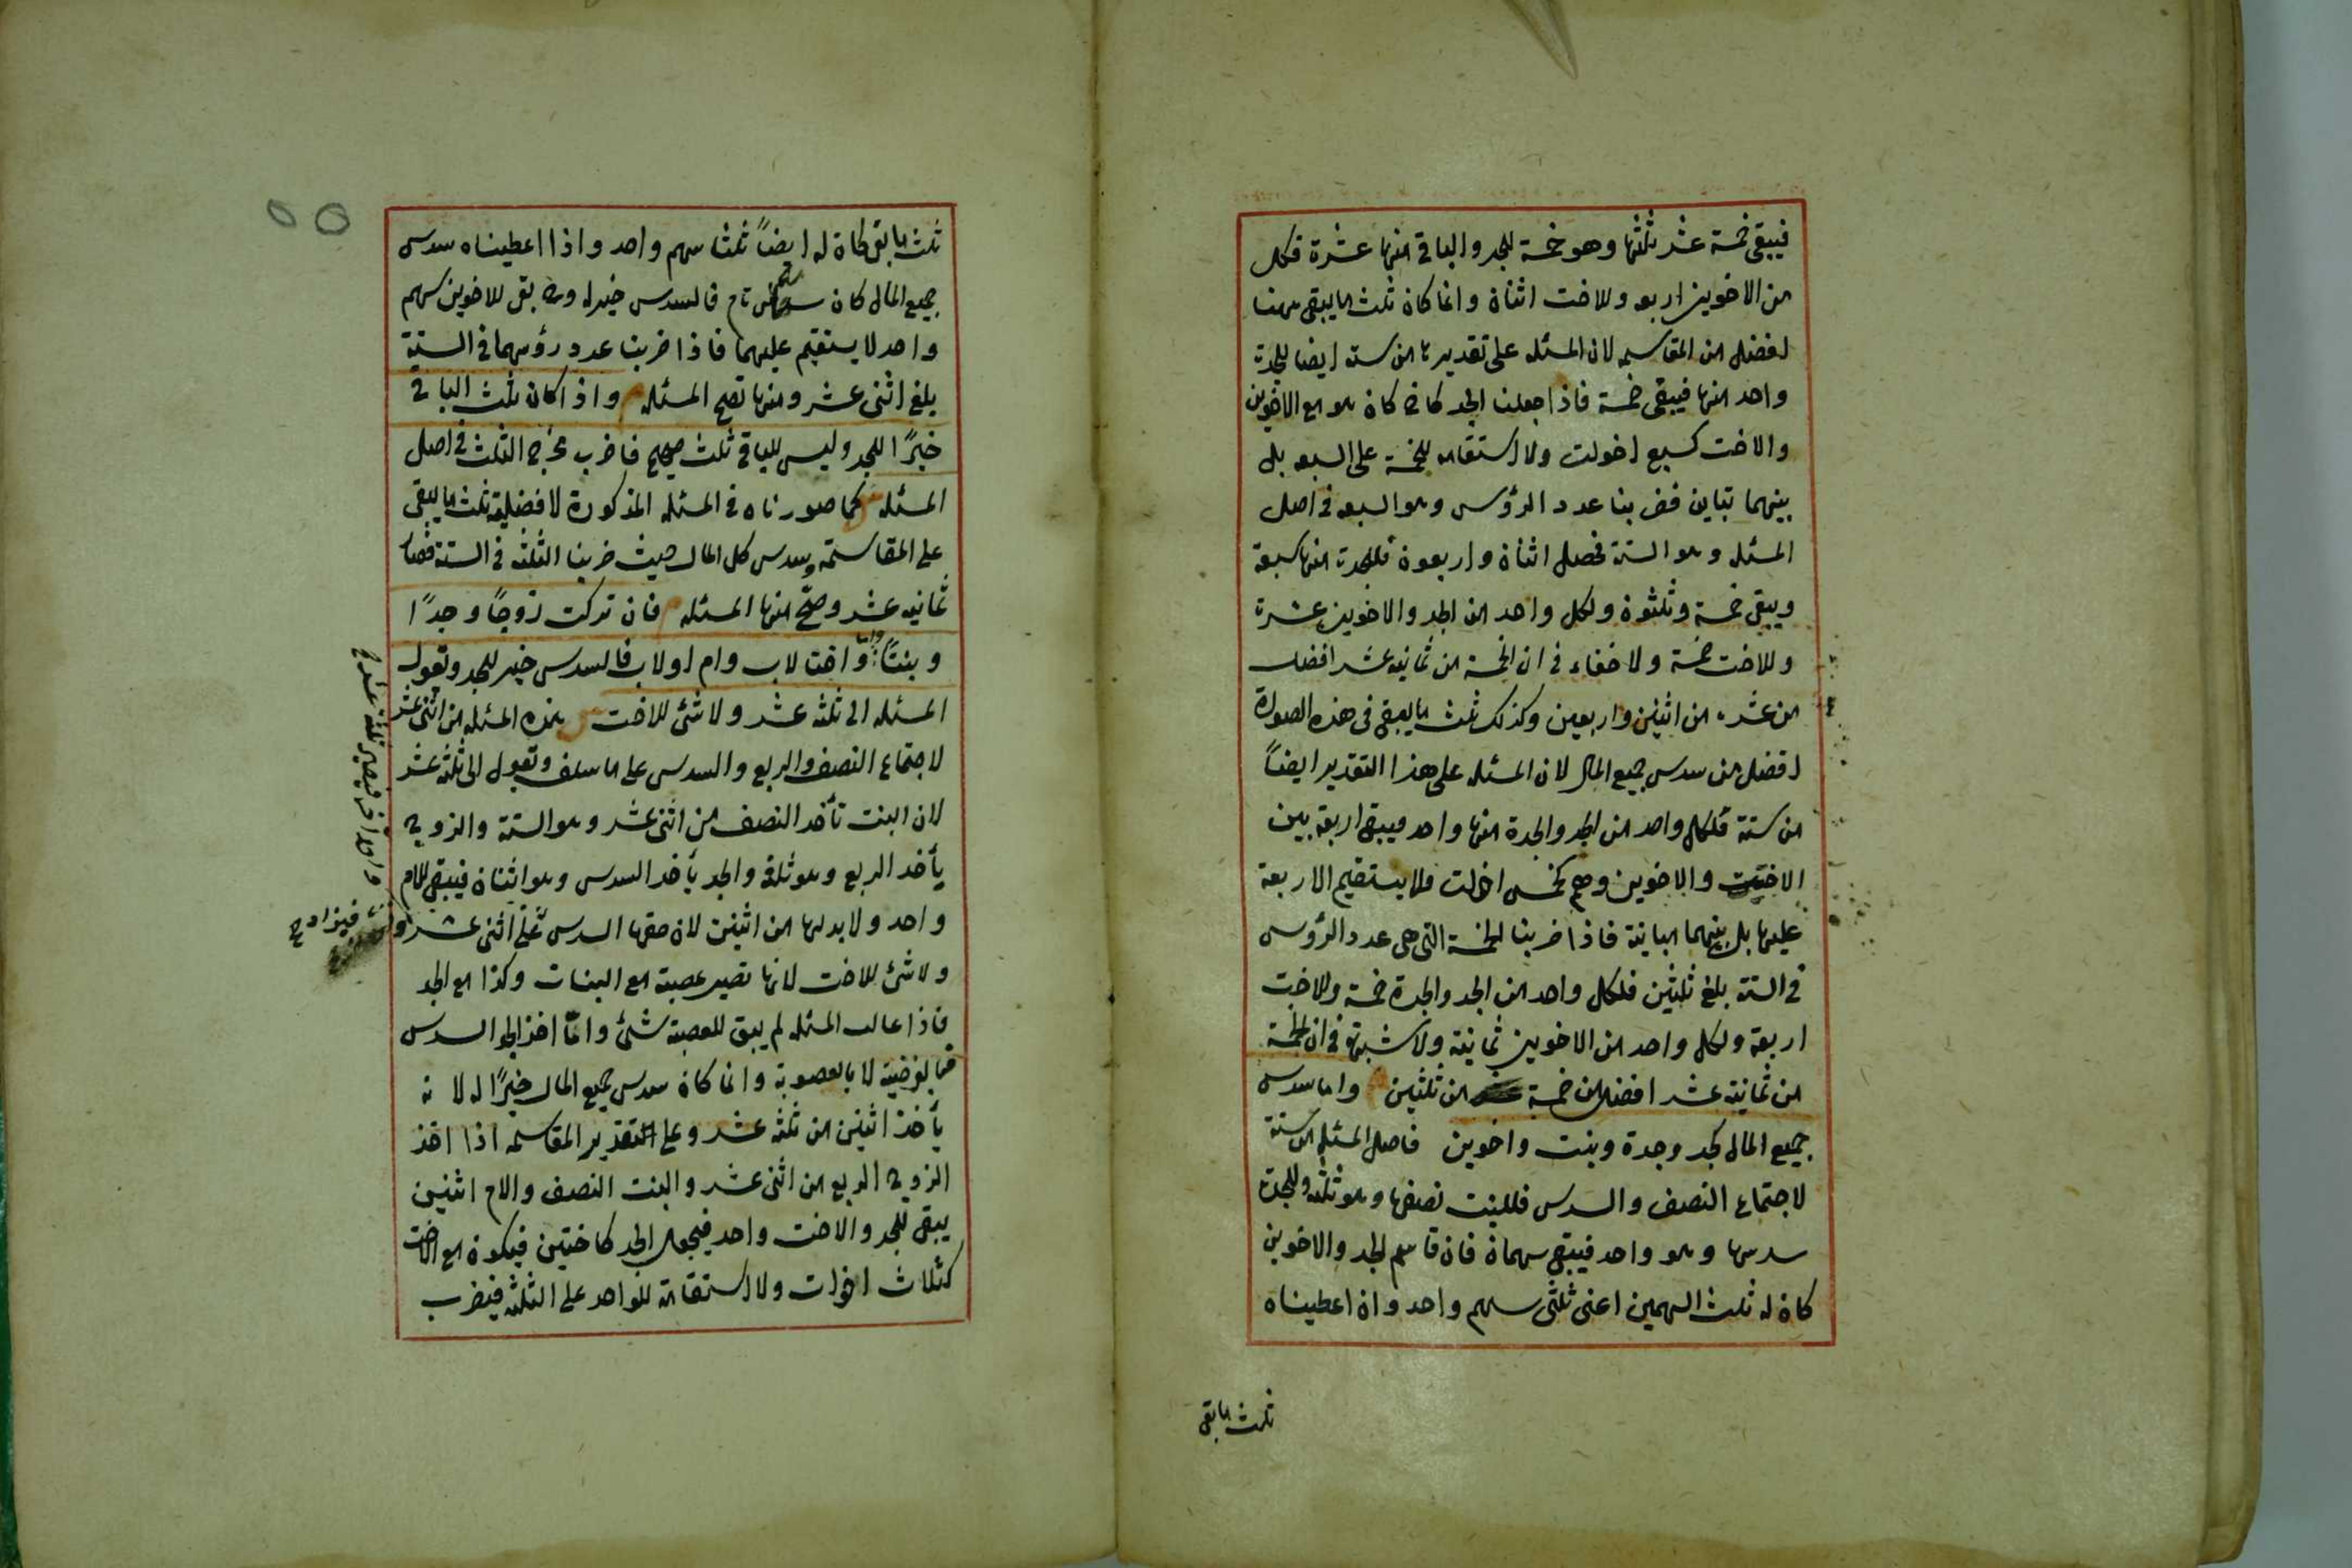 فيبقى خمسة عشر ثلثها وهو خمسة للجد والباقى منها عشرة فكل
من الاخوين اربعه وللاخت اثنان وانما كان ثلث ما يبقى مهنا
افضل من المقاسمه لان المسئله على تقديرها من سته ايضا للجدة
واحد منها فيبقى خمسة فاذا جعلنا الجد كاخ كان هو مع الاخوين
والاخت كسبع اخوات ولا استقامه للخمسة على السبعه بل
بينهما تباين فضربنا عدد الرؤس وهو السبعه فى اصل
المسئله وهو الستة فحصل اثنان واربعون فللجدة منها سبعة
ويبقى خمسة وثلثون ولكل واحد من الجد والاخوين عشرة
وللاخت خمسة ولا خفاء فى ان الخمسة من ثمانيه عشر افضل
من عشرة من اثنين واربعين وكذلك ثلث ما يبقى فى هذه الصورة
افضل من سدس جميع المال لان المسئله على هذا التقدير ايضاً
من ستة فلكل واحد من الجد والجدة منها واحد فيبقى اربعة بين
الاخت والاخوين وهم كخمس اخوات فلا يستقيم الاربعة
عليها بل بينهما مباينة فاذا ضربنا الخمسة التى هى عدد الرؤس
فى الستة بلغ ثلثين فلكل واحد من الجد والجدة خمسة وللاخت
اربعة ولكل واحد من الاخوين ثمانية ولا شبهة فى ان الخمسة
من ثمانية عشر افضل من خمسة من ثلثين واما سدس
جميع المال كجد وجدة وبنت واخوين فاصل المسئله من ستة
لاجتماع النصف والسدس فللبنت نصفها وهو ثلثه وللجدة
سدسها وهو واحد فيبقى سهمان فان قاسم الجد والاخوين
كان له ثلث السهمين اعنى ثلثى سهم واحد وان اعطيناه
ثلث ما بقى
ثلث ما بقى كان له ايضاً ثلثا سهم واحد واذا اعطيناه سدس
جميع المال كان سهم تام فالسدس خير له وح بقى للاخوين سهم
واحد لا يستقيم عليهما فاذا ضربنا عدد رؤسهما فى الستة
بلغ اثنى عشر ومنها تصح المسئله واذا كان ثلث الباقى
خيرًا للجد وليس للباقى ثلث صحيح فاضرب مخرج الثلث فى اصل
المسئله كما صورناه فى المسئله المذكورة لافضلية ثلث ما يبقى
على المقاسمة وسدس كل المال حيث ضربنا الثلثه فى الستة فصار
ثمانيه عشر وصح منها المسئله فان تركت زوجًا وجدًا
وبنتًا واما واختا لاب وام او لاب فالسدس خير للجد وتعول
المسئله الى ثلثه عشر ولا شئ للاخت هذه المسئله من اثنى عشر
لاجتماع النصف والربع والسدس على ما سلف وتعول الى ثلثه عشر
لان البنت تأخذ النصف من اثنى عشر وهو الستة والزوج
يأخذ الربع وهو ثلثة والجد يأخذ السدس وهو اثنان فيبقى للام
واحد ولا بد لها من اثنين لان حقها السدس على اثنى عشر
ولا شئ للاخت لانها تصير عصبة مع البنات وكذا مع الجد
فاذا عالت المسئله لم يبق للعصبة شئ وانما اخذ الجد السدس
بالفرضية لا بالعصوبة وانما كان سدس جميع المال خيرًا له لانه
يأخذ اثنين من ثلثه عشر وعلى التقدير المقاسمه اذا اخذ
الزوج الربع من اثنى عشر والبنت النصف والام اثنين
يبقى للجد والاخت واحد فيجعل الجد كاختين فيكون مع الاخت
كثلاث اخوات ولا استقامة للواحد على الثلثه فيضرب
فيزاد ح
واحد آخر فيصير ثلثه عشر ح